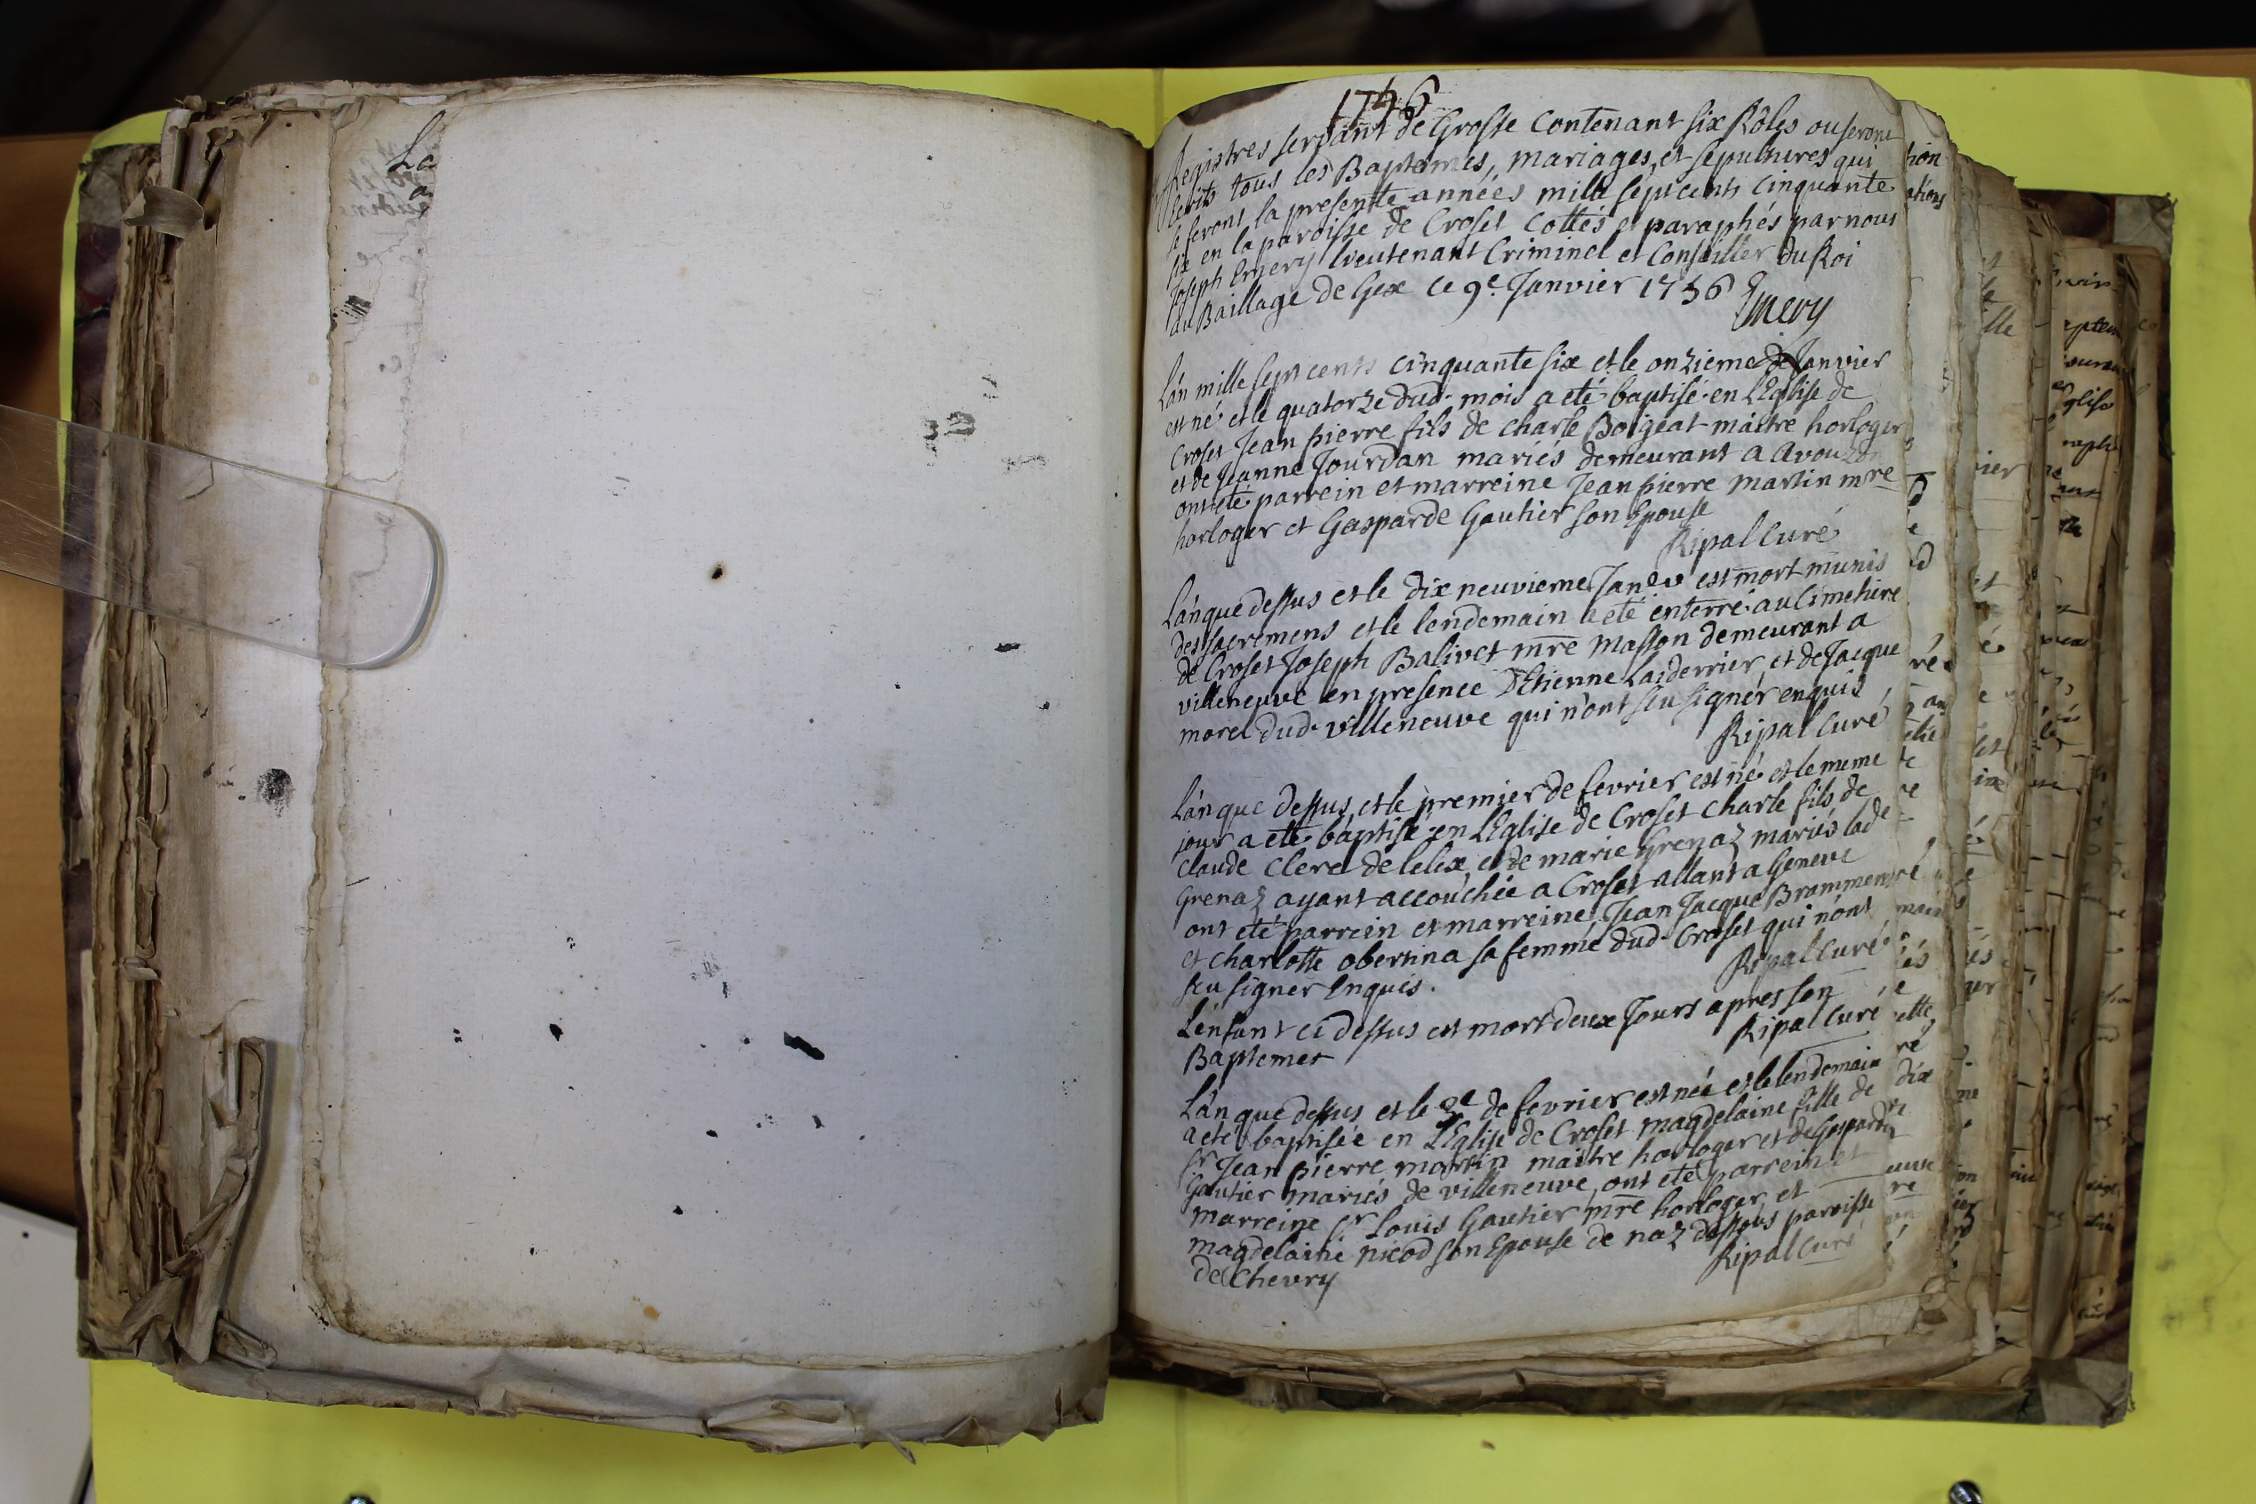 1756
Registres servant de Grosse Contenant six Rôles ou seront
Ecrits tous les Baptemes, mariages, et sepultures qui
se feront la presentte années mille sept cents cinquante
six en la paroisse de Croset Cottés et paraphés par nous
Joseph Emery lieutenant Criminel et Conseiller du Roi
au Baillage de Gex ce 9e. Janvier 1756
Emery
L'an mille sept cents cinquante six et le onzieme de Janvier
est né et le quatorze dud. mois a eté baptisé en L'Eglise de
Croset Jean pierre fils de charle Boigeat maitre horloger
et de Jeanne Jourdan mariés demeurant a Avouzon
ont eté parrein et marreine Jean pierre martin mre
horloger et Gasparde Gautier son Epouse
Ripal Curé
L'an que dessus et le dix neuvieme Janv. est mort munis
des sacremens et le lendemain a eté enterré au Cimetiere
de Croset Joseph Balivet mre masson demeurant a
villeneuve en presence D'Etienne Laiderrier et de Jacque
morel dud. villeneuve qui n'ont sçu signér enquis
Ripal Curé
L'an que dessus et le premier de fevrier est né et le meme
jour a eté baptisé en L'Eglise de Croset Charle fils de
Claude Clerc de lelex et de marie Grenaz mariés lade
Grenaz ayant accouchée a Croset allant a Geneve
ont eté parrein et marreine Jean Jacque Brammerel
et Charlotte obertina sa femme dud. Croset qui n'ont
sçu signer Enquis.
Ripal Curé
L'enfant ci dessus est mort deux Jours apres son
Baptemes
Ripal Curé
L'an que dessus et le 3e de fevrier est née et le lendemain
a eté baptisée en L'Eglise de Croset magdelaine fille de
sr Jean pierre martin maitre horloger et de Gasparde
Gautier mariés de villeneuve, ont eté parrein et
marreine sr Louis Gautier mre horloger et
magdelaine nicod son Epouse de naz dessous paroisse
de Chevry
Ripal Curé